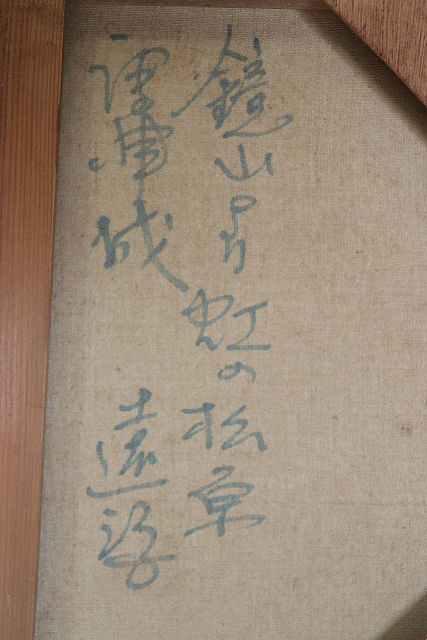 鏡山より虹の松原
唐津城 遠